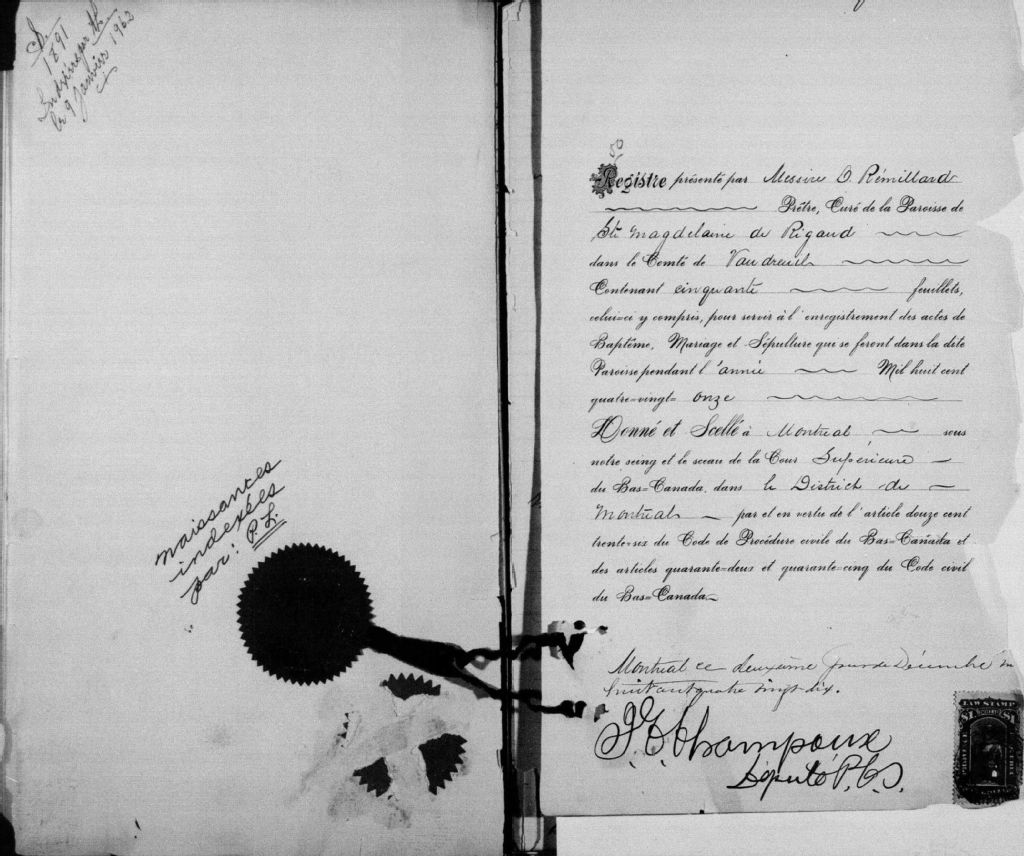 1891
le 9 Janvier 1962
naissances
indexées
par: P. L.
Registre présenté par Messire O Rémillard
Prêtre, Curé de la Paroisse de
Ste Magdelaine de Rigaud
dans le Comté de Vaudreuil
Contenant cinquante feuillets,
celui=ci y compris, pour servir à l'enregistrement des actes de
Baptême, Mariage et Sépulture qui se feront dans la dite
Paroisse pendant l'année Mil huit cent
quatre=vingt= onze
Donné et Scellé à Montreal sous
notre seing et le sceau de la Cour Supérieure
du Bas=Canada, dans le District de
Montreal par et en vertu de l'article douze cent
trente=six du Code de Procédure civile du Bas=Canada et
des articles quarante=deux et quarante=cinq du Code civil
du Bas=Canada
Montreal ce deuxième jour de Décembre
huit cent quatre vingt-dix.
Champoux
Député P.C.S.
LAW STAMP
$1 $1